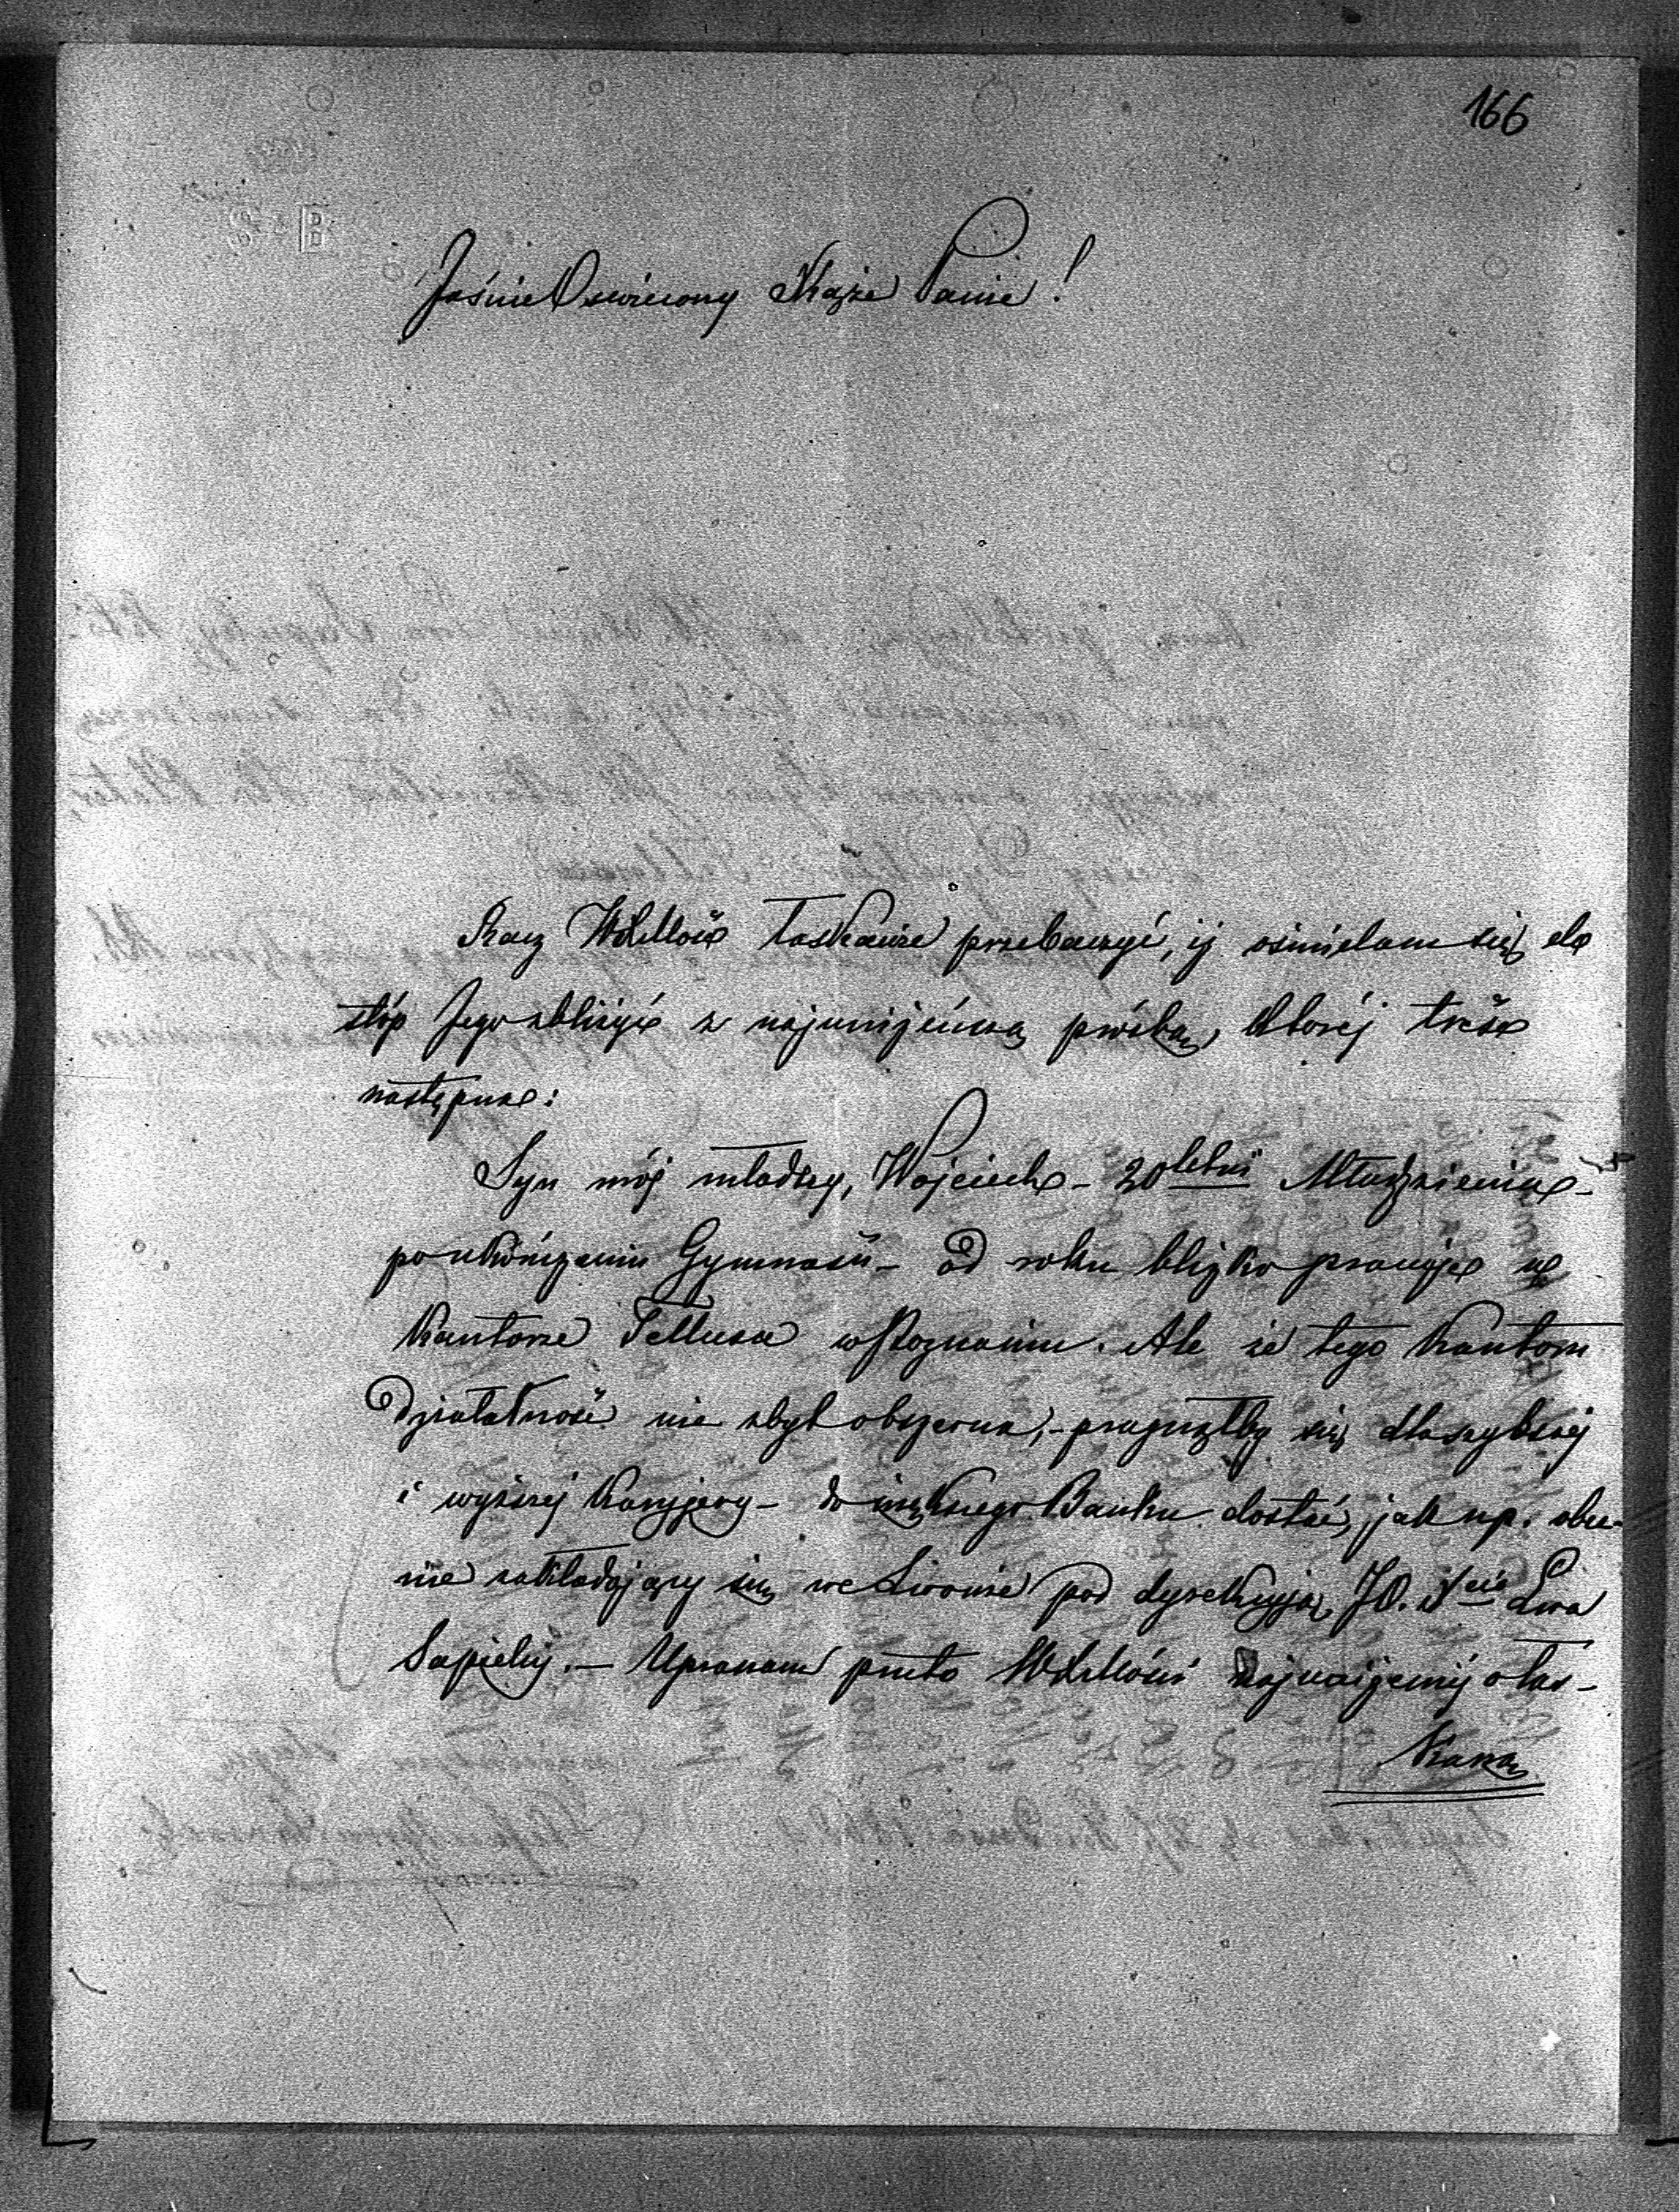 166
S & B
Jaśnie Oswiecony Xiąże Panie!
Racz WXMość łaskawie przebaczyć, iż ośmielam się do
stóp Jego zbliżyć z najuniżeńszą prośbą, której treść
następna:
Syn mój młodszy, Wojciech – 20 letni Młodzieniec –
po ukończeniu Gymnasii – od roku blizko pracuje w
Kantorze Tellusa w Poznaniu. Ale że tego Kantoru
działalność nie zbyt obszerna, – pragnąłby się dla szybszej
i wyższej karyjery – do większego Banku dostać, jak np. obe-
nie zakładający się we Lwowie pod dyrekcyją JO. Xcia Lwa
Sapiehy. – Upraszam przeto WXMości najuniżeniej o łas-
kawą